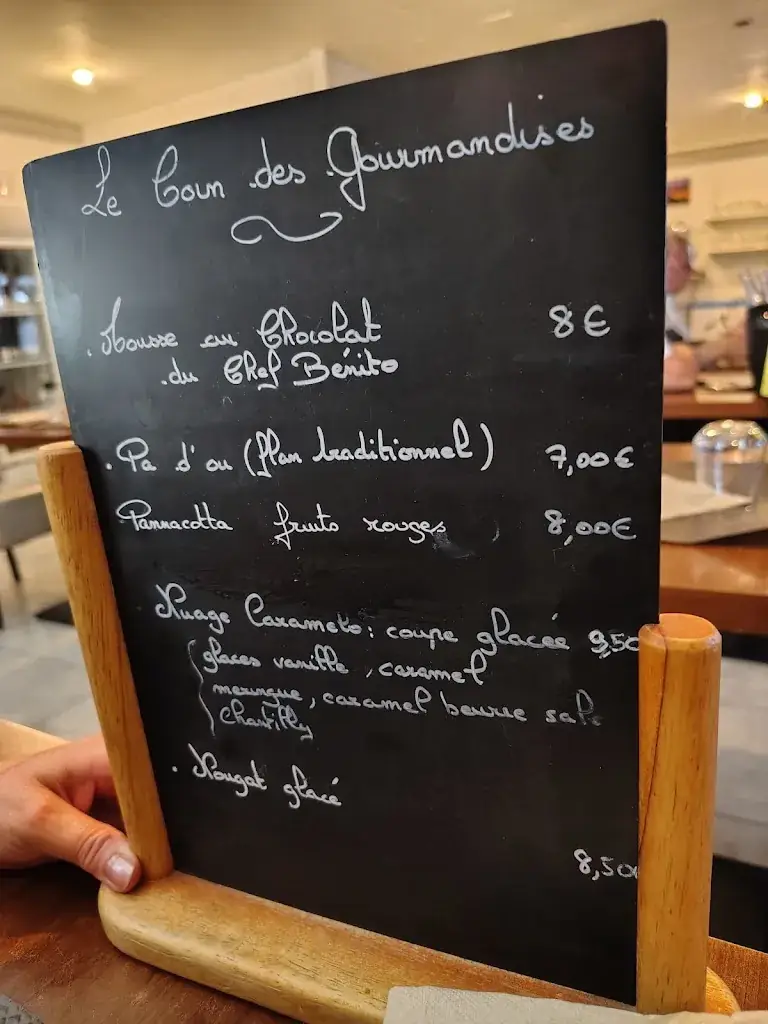 Le Coin des Gourmandises
. Mousse au Chocolat 8€
.du Chef Bénito
. Pa d'ou (flan traditionnel) 7,00€
Pannacotta fruits rouges 8,00€
Nuage Caramelo: coupe glacée 9,50
glaces vanille, caramel
meringue, caramel beurre salé
Chantilly
. Nougat glacé
8,50